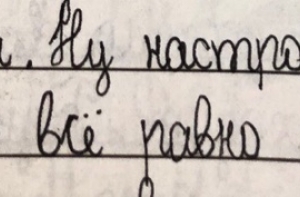 . Ну настро
всё равно